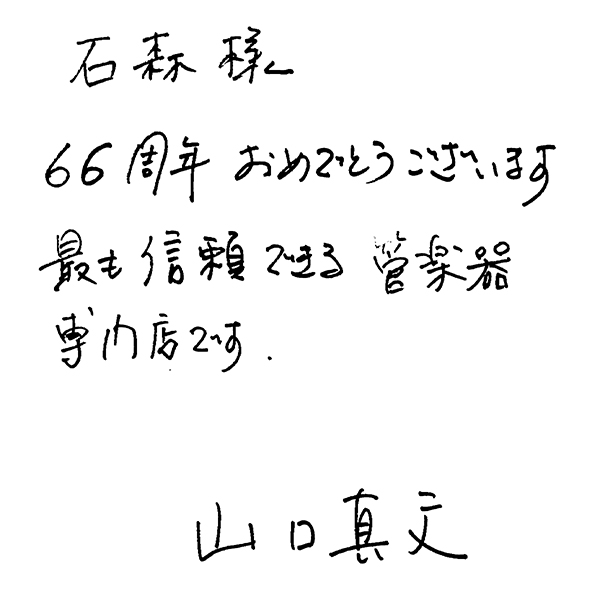 石森様
66周年 おめでとうございます
最も信頼できる 管楽器
専門店です.
山口真文